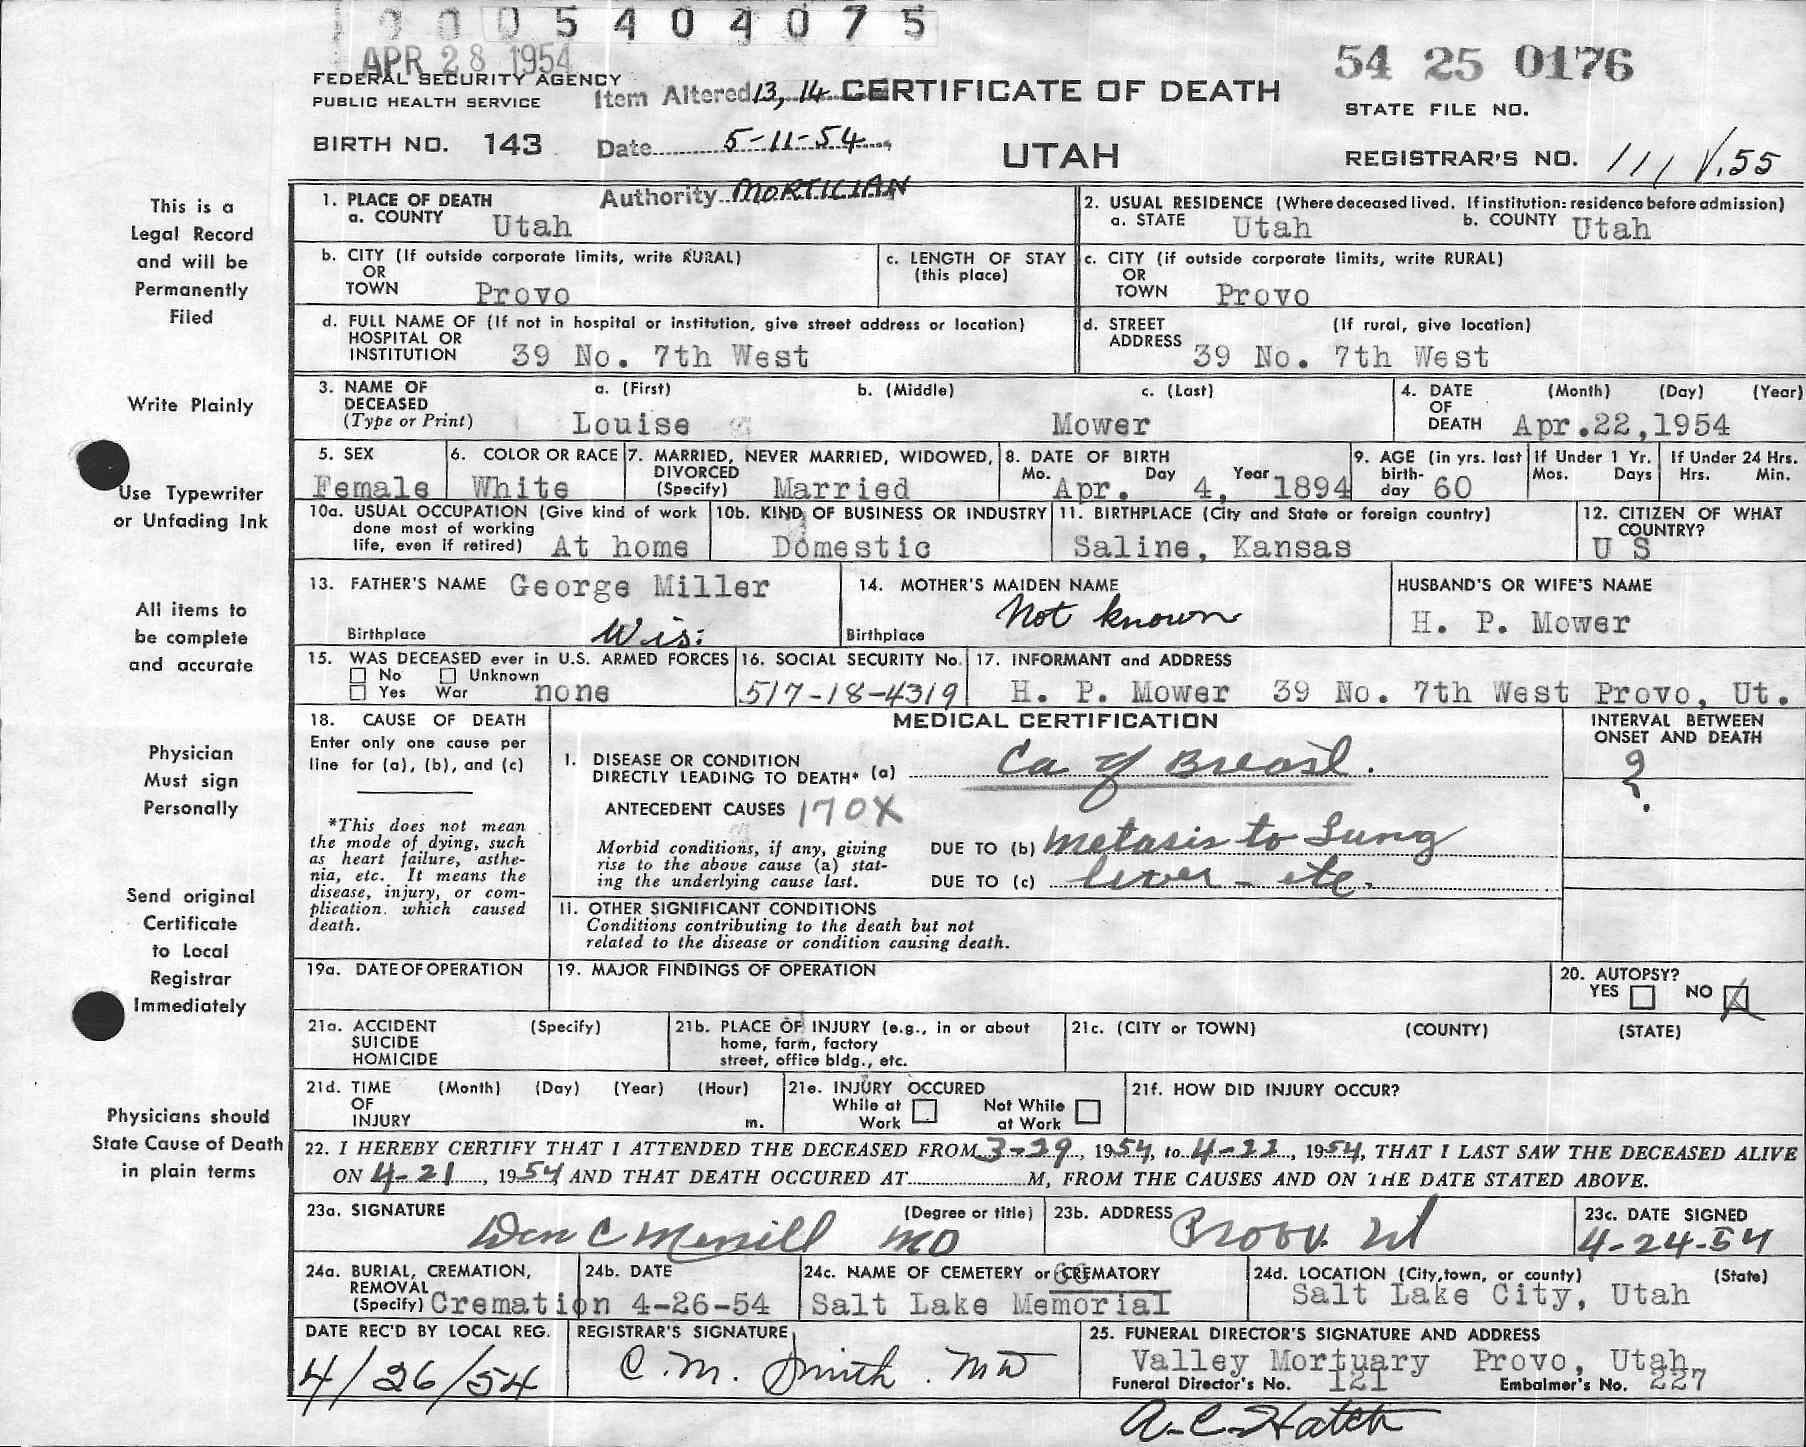 0005404075
APR 28 1954
54 25 0176
FEDERAL SECURITY AGENCY
PUBLIC HEALTH SERVICE
Item Altered 13, 14
CERTIFICATE OF DEATH
STATE FILE NO.
BIRTH NO. 143
Date 5-11-54
UTAH
REGISTRAR'S NO. 111 V.55
Authority MORTICIAN
This is a
Legal Record
and will be
Permanently
Filed
Write Plainly
Use Typewriter
or Unfading Ink
All items to
be complete
and accurate
Physician
Must sign
Personally
Send original
Certificate
to Local
Registrar
Immediately
Physicians should
State Cause of Death
in plain terms
1. PLACE OF DEATH
a. COUNTY Utah
2. USUAL RESIDENCE (Where deceased lived. If institution: residence before admission)
a. STATE Utah b. COUNTY Utah
b. CITY (If outside corporate limits, write RURAL)
OR
TOWN Provo
c. LENGTH OF STAY
(this place)
c. CITY (if outside corporate limits, write RURAL)
OR
TOWN Provo
d. FULL NAME OF (If not in hospital or institution, give street address or location)
HOSPITAL OR
INSTITUTION 39 No. 7th West
d. STREET (If rural, give location)
ADDRESS 39 No. 7th West
3. NAME OF a. (First) b. (Middle) c. (Last)
DECEASED
(Type or Print) Louise Mower
4. DATE (Month) (Day) (Year)
OF
DEATH Apr.22,1954
5. SEX
Female
6. COLOR OR RACE
White
7. MARRIED, NEVER MARRIED, WIDOWED,
DIVORCED
(Specify) Married
8. DATE OF BIRTH
Mo. Day Year
Apr. 4, 1894
9. AGE (in yrs. last
birth-
day 60
If Under 1 Yr.
Mos. Days
If Under 24 Hrs.
Hrs. Min.
10a. USUAL OCCUPATION (Give kind of work
done most of working
life, even if retired) At home
10b. KIND OF BUSINESS OR INDUSTRY
Domestic
11. BIRTHPLACE (City and State or foreign country)
Saline, Kansas
12. CITIZEN OF WHAT
COUNTRY?
U S
13. FATHER'S NAME George Miller
Birthplace Wis.
14. MOTHER'S MAIDEN NAME
Not known
Birthplace
HUSBAND'S OR WIFE'S NAME
H. P. Mower
15. WAS DECEASED ever in U.S. ARMED FORCES
No Unknown
Yes War none
16. SOCIAL SECURITY No.
517-18-4319
17. INFORMANT and ADDRESS
H. P. Mower 39 No. 7th West Provo, Ut.
18. CAUSE OF DEATH
Enter only one cause per
line for (a), (b), and (c)
*This does not mean
the mode of dying, such
as heart failure, asthe-
nia, etc. It means the
disease, injury, or com-
plication. which caused
death.
MEDICAL CERTIFICATION
INTERVAL BETWEEN
ONSET AND DEATH
I. DISEASE OR CONDITION
DIRECTLY LEADING TO DEATH* (a) Ca of Breast.
?
ANTECEDENT CAUSES 170X
Morbid conditions, if any, giving
rise to the above cause (a) stat-
ing the underlying cause last.
DUE TO (b) Metasis to Lung
DUE TO (c) liver - etc.
II. OTHER SIGNIFICANT CONDITIONS
Conditions contributing to the death but not
related to the disease or condition causing death.
19a. DATE OF OPERATION
19. MAJOR FINDINGS OF OPERATION
20. AUTOPSY?
YES NO X
21a. ACCIDENT (Specify)
SUICIDE
HOMICIDE
21b. PLACE OF INJURY (e.g., in or about
home, farm, factory
street, office bldg., etc.
21c. (CITY or TOWN) (COUNTY) (STATE)
21d. TIME (Month) (Day) (Year) (Hour)
OF
INJURY m.
21e. INJURY OCCURED
While at Not While
Work at Work
21f. HOW DID INJURY OCCUR?
22. I HEREBY CERTIFY THAT I ATTENDED THE DECEASED FROM 3-29, 1954, to 4-22, 1954, THAT I LAST SAW THE DECEASED ALIVE
ON 4-21, 1954 AND THAT DEATH OCCURED AT M, FROM THE CAUSES AND ON THE DATE STATED ABOVE.
23a. SIGNATURE (Degree or title)
Don C Merrill MD
23b. ADDRESS
Provo. Ut
23c. DATE SIGNED
4-24-54
24a. BURIAL, CREMATION,
REMOVAL
(Specify) Cremation
24b. DATE
4-26-54
24c. NAME OF CEMETERY or CREMATORY
Salt Lake Memorial
24d. LOCATION (City, town, or county) (State)
Salt Lake City, Utah
DATE REC'D BY LOCAL REG.
4/26/54
REGISTRAR'S SIGNATURE
C. M. Smith. MD
25. FUNERAL DIRECTOR'S SIGNATURE AND ADDRESS
Valley Mortuary Provo, Utah
Funeral Director's No. 121 Embalmer's No. 227
A. C. Hatch